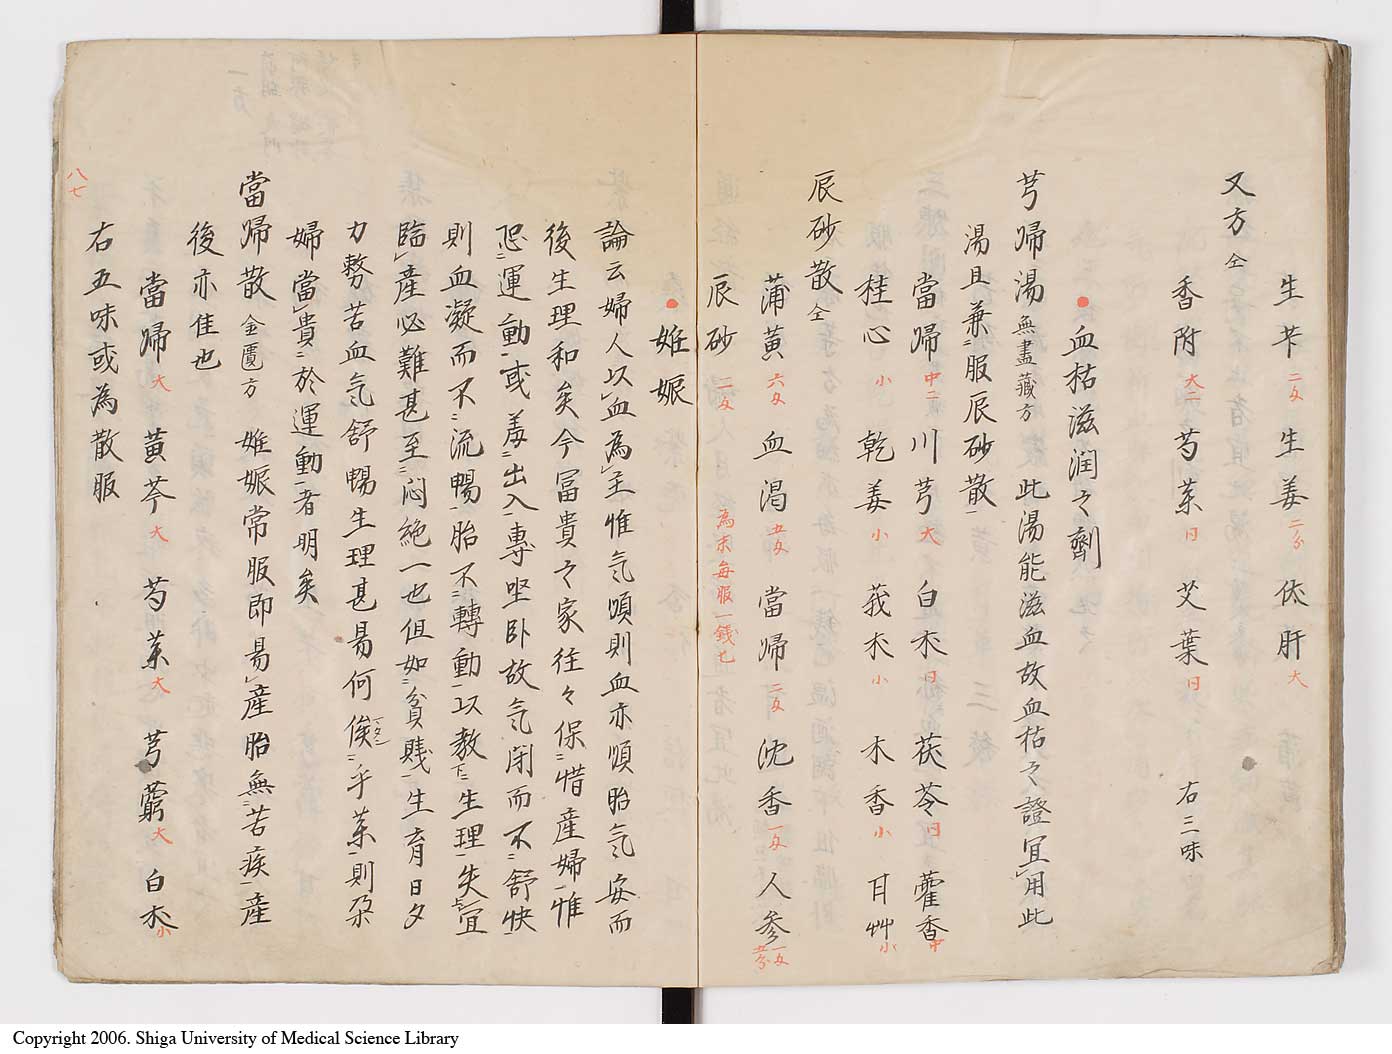 生芐 二匁 生姜 二分 伏肝 大
又方 仝
香附 大二 芍薬 日 艾葉 日 右三味
血枯滋潤之劑
芎歸湯 無盡藏方 此湯能滋血故血枯之證宜用此
湯且兼服辰砂散
當歸 中二 川芎 大 白朮 日 茯苓 日 藿香 中
桂心 小 乾姜 小 莪朮 小 木香 小 甘艸 小
辰砂散 仝
蒲黄 六匁 血渇 五匁 當歸 二匁 沈香 一匁 人參 一匁五分
辰砂 二匁 為末毎服一銭匕
妊娠
論云婦人以血為主惟気順則血亦順胎気安而
後生理和矣今冨貴之家往々保惜産婦惟
恐運動或羞出入專坐卧故気閉而不舒快
則血凝而不流暢胎不轉動以教生理失宜
臨産必難甚至悶絶一也但如貧賎生育日夕
力勢苦血気舒暢生理甚易何俟乎薬則孕
婦當貴於運動者明矣
當歸散 金匱方 妊娠常服即易産胎無苦疾産
後亦佳也
當歸 大 黄芩 大 芍薬 大 芎藭 大 白朮 小
右五味或為散服
八七
Copyright 2006. Shiga University of Medical Science Library